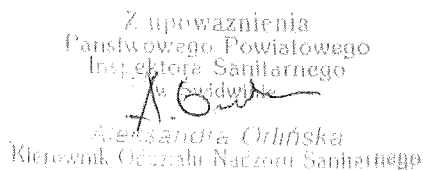 Z upoważnienia
Państwowego Powiatowego
Inspektora Sanitarnego
w Świdwinie
Aleksandra Orlińska
Kierownik Oddziału Nadzoru Sanitarnego